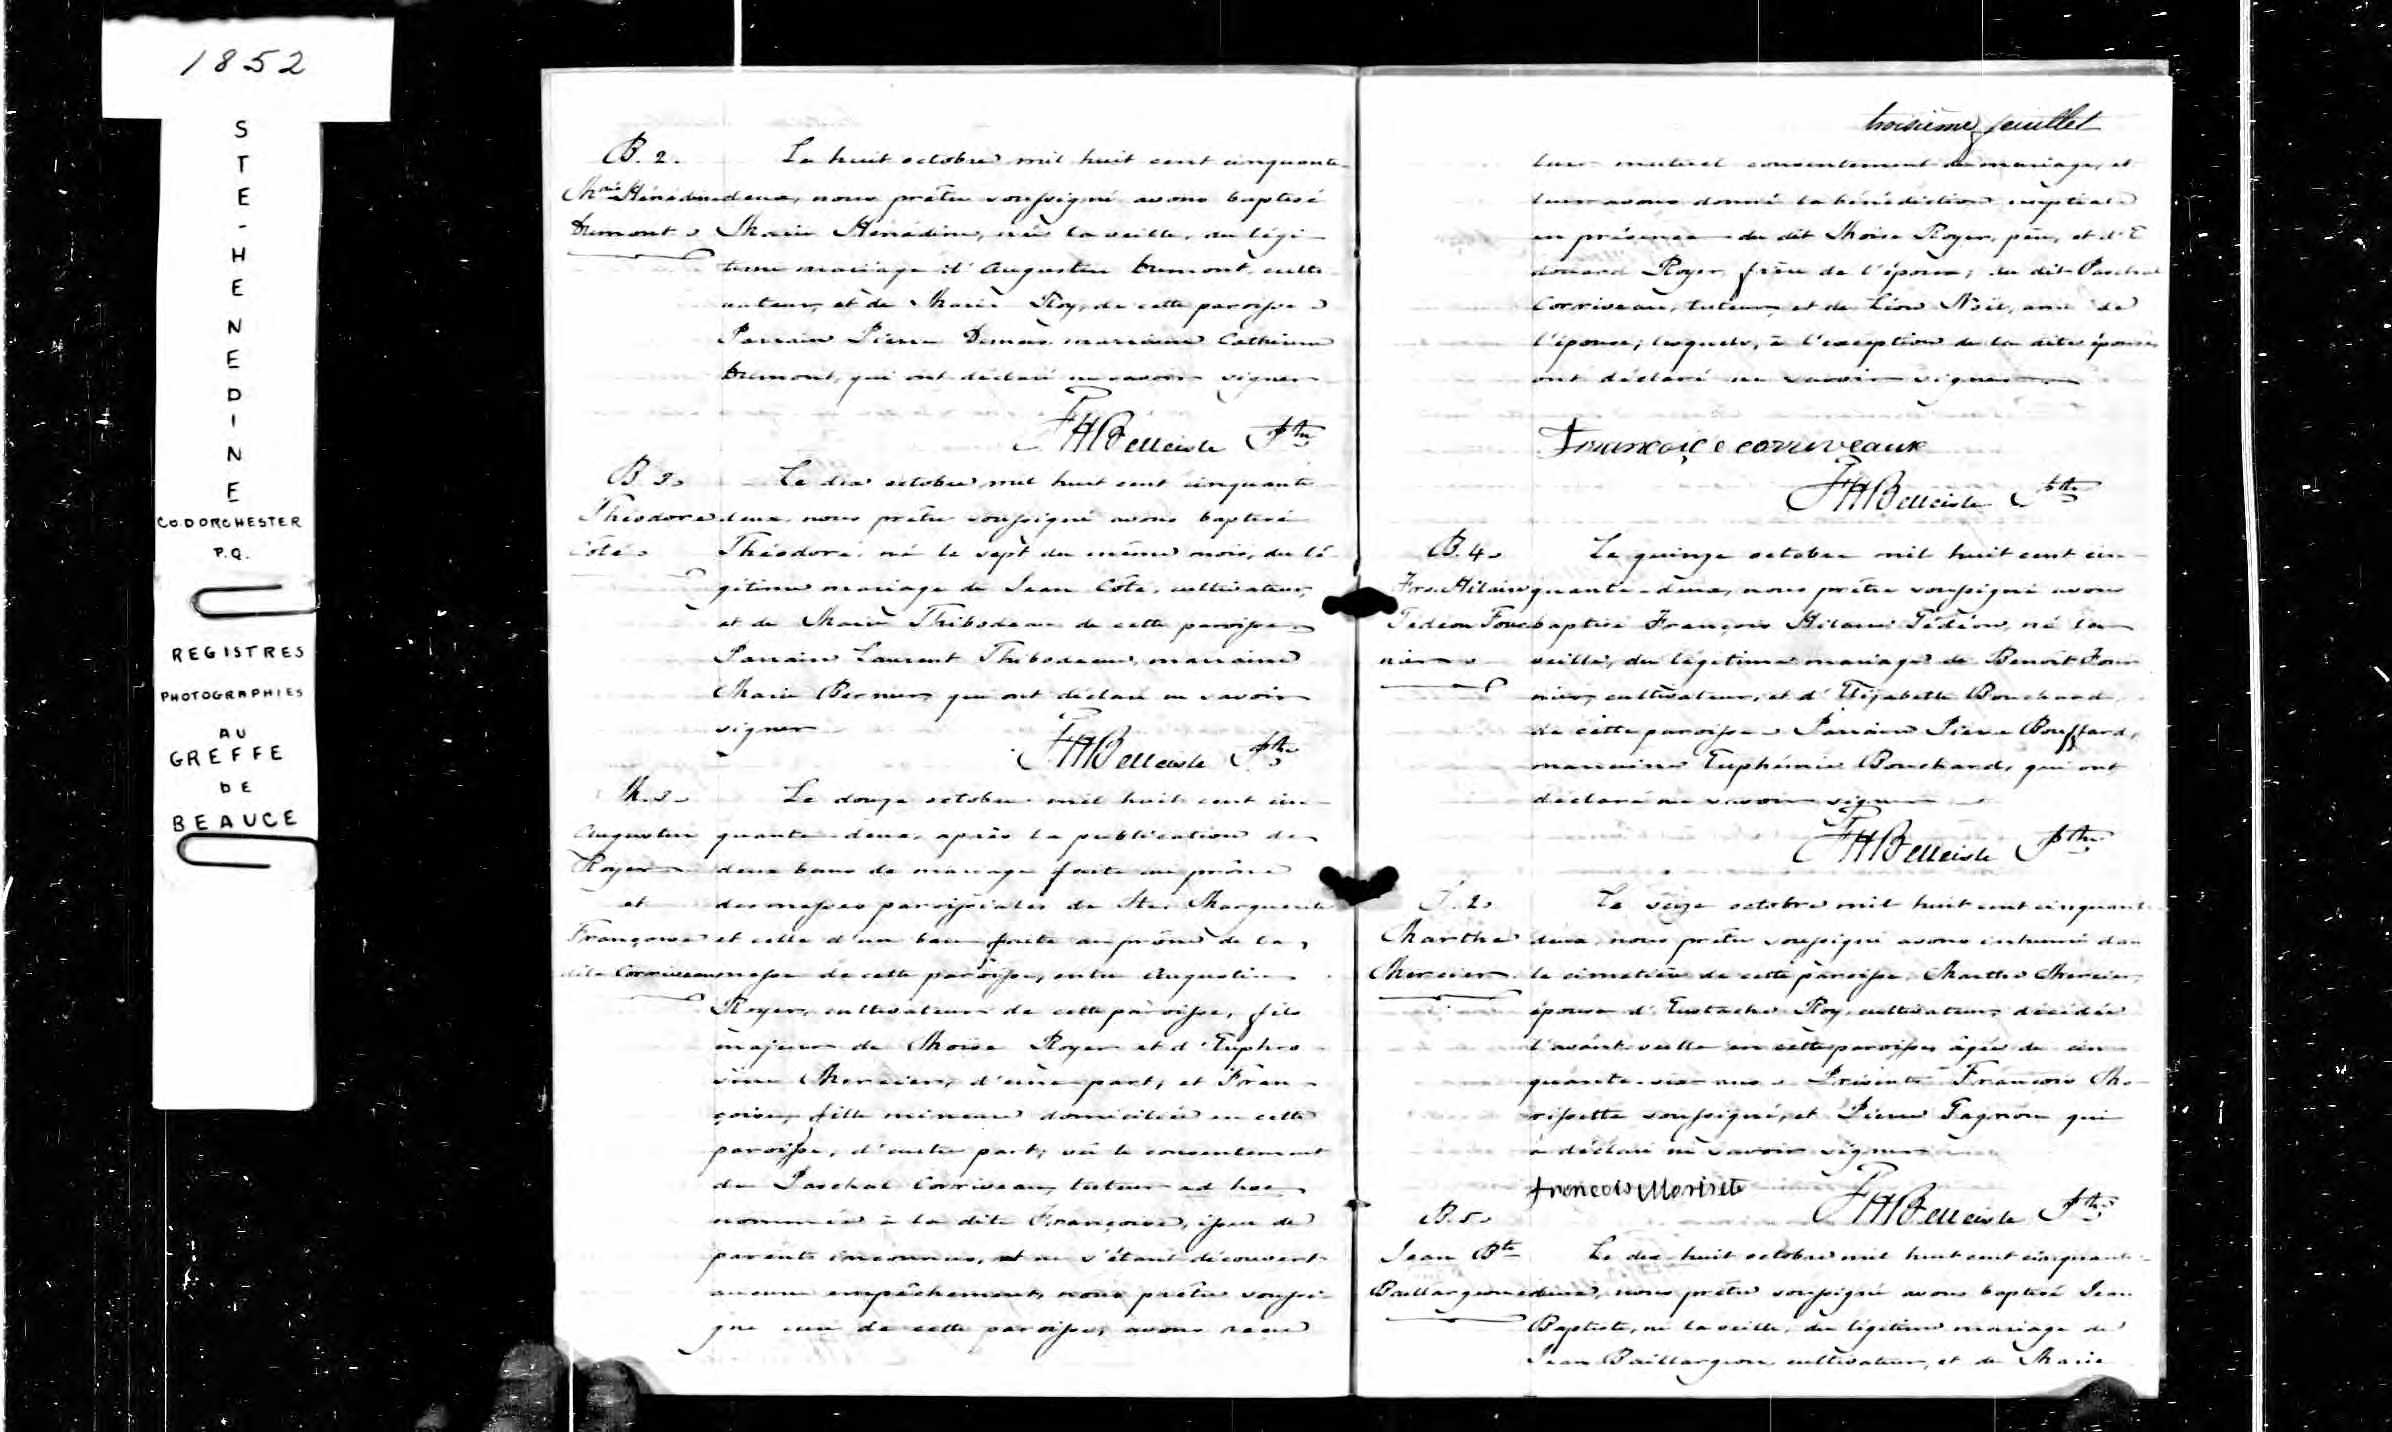 1852
STE-HENEDINE
CO. DORCHESTER
P.Q.
REGISTRES
PHOTOGRAPHIES
AU
GREFFE
DE
BEAUCE
B. 2.
Mrie Hénédine
Dumont
Le huit octobre mil huit cent cinquante
deux, nous prêtre soussigné avons baptisé
Marie Hénédine, née la veille, du légi-
time mariage d'Augustin Dumont, culti-
vateur, et de Marie Roy, de cette paroisse
Parrain Pierre Demers marraine Catherine
Dumont, qui ont déclaré ne savoir signer
FHBelleisle Ptre
B. 3.
Théodore
Côté
Le dix octobre mil huit cent cinquante
deux, nous prêtre soussigné avons baptisé
Théodore, né le sept du même mois, du lé-
gitime mariage de Jean Côté, cultivateur,
et de Marie Thibodeau de cette paroisse
Parrain Laurent Thibodeau, marraine
Marie Bernier, qui ont déclaré ne savoir
signer
FHBelleisle Ptre
M. 3.
Augustin
Royer
et
Françoise
dite Corriveau
Le douze octobre mil huit cent cin-
quante-deux, après la publication de
deux bans de mariage faite au prône
des messes paroissiales de Ste Marguerite
et celle d'un ban faite au prône de la
messe de cette paroisse, entre Augustin
Royer, cultivateur de cette paroisse, fils
majeur de Moïse Royer et d'Euphro-
sine Mercier, d'une part, et Fran-
çoise, fille mineure domiciliée en cette
paroisse, d'autre part, vu le consentement
de Paschal Corriveau, tuteur ad hoc
nommé à la dite Françoise, issue de
parents inconnus, et ne s'étant découvert
aucun empêchement, nous prêtre soussi-
gné curé de cette paroisse, avons reçu
troisième feuillet
leur mutuel consentement de mariage, et
leur avons donné la bénédiction nuptiale
en présence du dit Moïse Royer, père, et d'E
douard Royer, frère de l'époux; du dit Paschal
Corriveau, tuteur, et de Léon Noël, ami de
l'épouse; lesquels, à l'exception de la dite épouse,
ont déclaré ne savoir signer
Francoiçe corriveaux
FHBelleisle Ptre
B. 4.
Frs. Hilaire
Gédéon Four
nier
Le quinze octobre mil huit cent cin-
quante-deux, nous prêtre soussigné avons
baptisé François Hilaire Gédéon, né la
veille, du légitime mariage de Benoît Four
nier, cultivateur, et d'Elizabeth Bouchard
de cette paroisse Parrain Pierre Bouffard,
marraine Euphémie Bouchard, qui ont
déclaré ne savoir signer
FHBelleisle Ptre
S. 2.
Marthe
Mercier
Le seize octobre mil huit cent cinquante
deux, nous prêtre soussigné avons inhumé dans
le cimetière de cette paroisse, Marthe Mercier,
épouse d'Eustache Roy, cultivateur, décédée
l'avant-veille en cette paroisse âgée de cin-
quante-six ans Présents François Mo-
rissette soussigné, et Pierre Gagnon qui
a déclaré ne savoir signer
francois Moriset
FHBelleisle Ptre
B. 5.
Jean Bte
Baillargeon
Le dix-huit octobre mil huit cent cinquante-
deux, nous prêtre soussigné avons baptisé Jean
Baptiste, né la veille, du légitime mariage de
Jean Baillargeon cultivateur, et de Marie